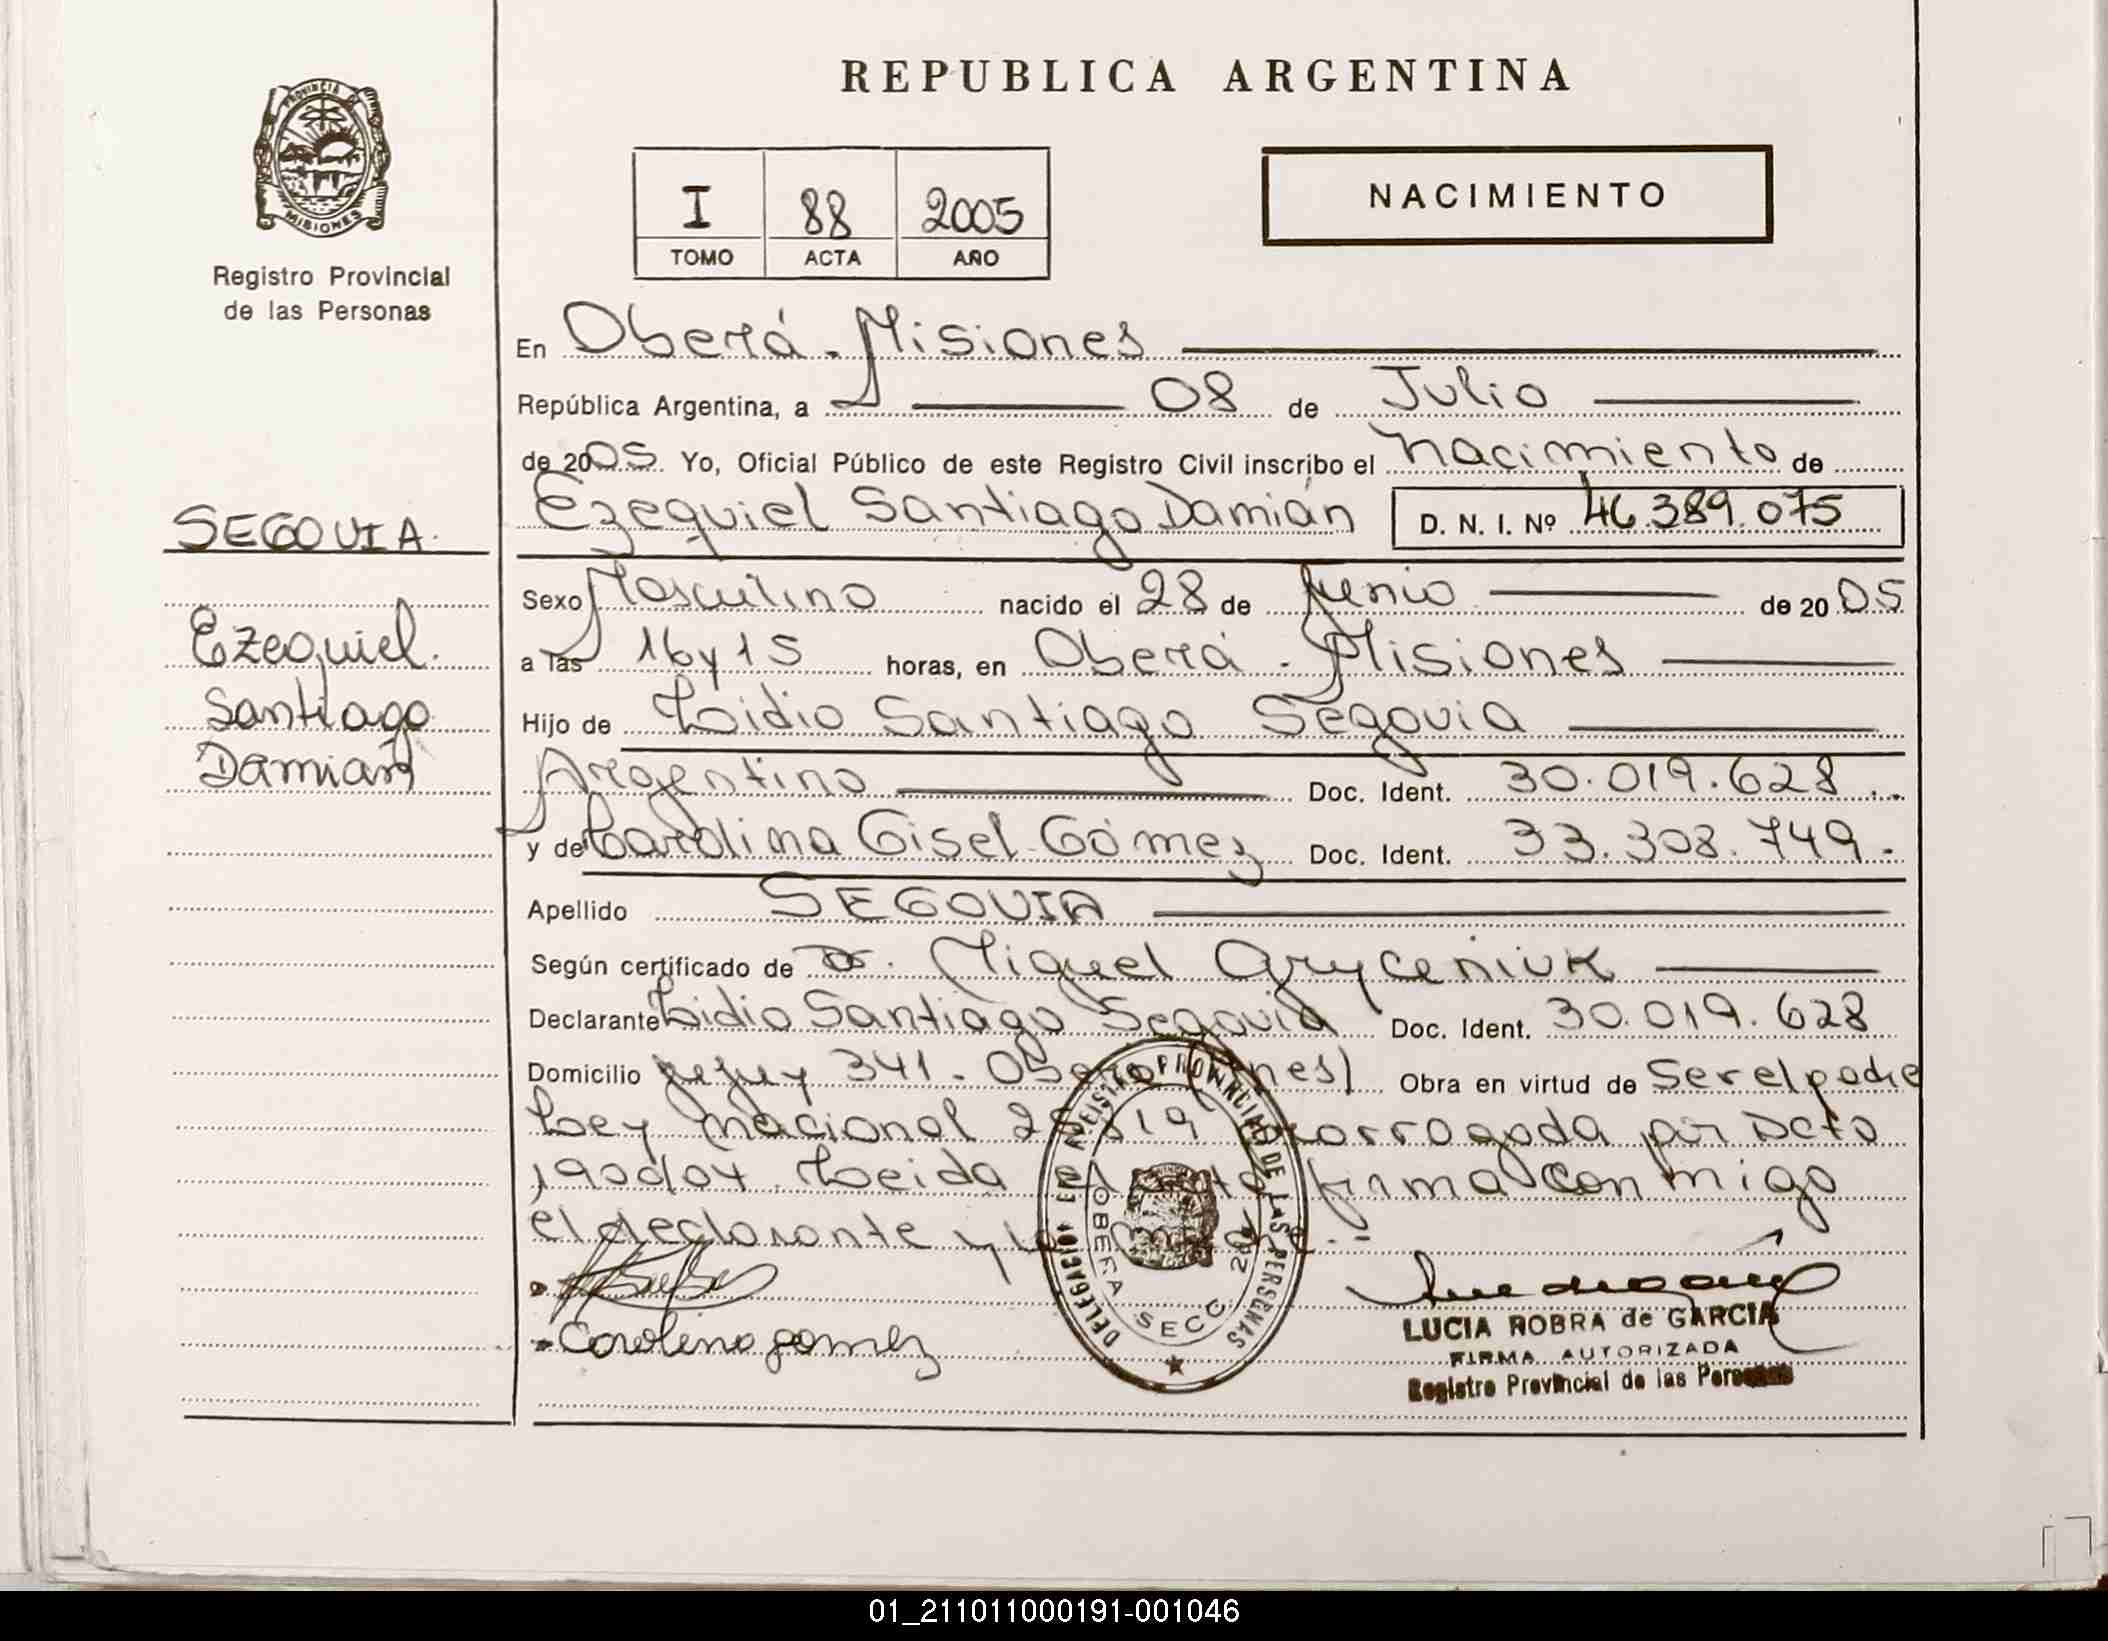 REPUBLICA ARGENTINA
PROVINCIA DE
MISIONES
Registro Provincial
de las Personas
I 88 2005
TOMO ACTA AÑO
NACIMIENTO
En Oberá - Misiones
República Argentina, a 08 de Julio
de 2005 Yo, Oficial Público de este Registro Civil inscribo el nacimiento de
Ezequiel Santiago Damián D. N. I. Nº 46.389.075
SEGOVIA.
Ezequiel.
Santiago
Damián
Sexo Masculino nacido el 28 de Junio de 2005
a las 16 y 15 horas, en Oberá - Misiones
Hijo de Lidio Santiago Segovia
Argentino Doc. Ident. 30.019.628
y de Carolina Gisel Gómez Doc. Ident. 33.308.749.
Apellido SEGOVIA
Según certificado de Dr. Miguel Gryceniuk
Declarante Lidio Santiago Segovia Doc. Ident. 30.019.628
Domicilio Jujuy 341 - Oberá (Mnes) Obra en virtud de Ser el padre
Ley Nacional 25819 prorrogada por Dcto
190d/04. Leida el acta firma conmigo
el declarante y la madre.-
Carolina gomez
DELEGACION EN REGISTRO PROVINCIAL DE LAS PERSONAS
OBERA SECC
LUCIA ROBRA de GARCIA
FIRMA AUTORIZADA
Registro Provincial de las Personas
01_211011000191-001046